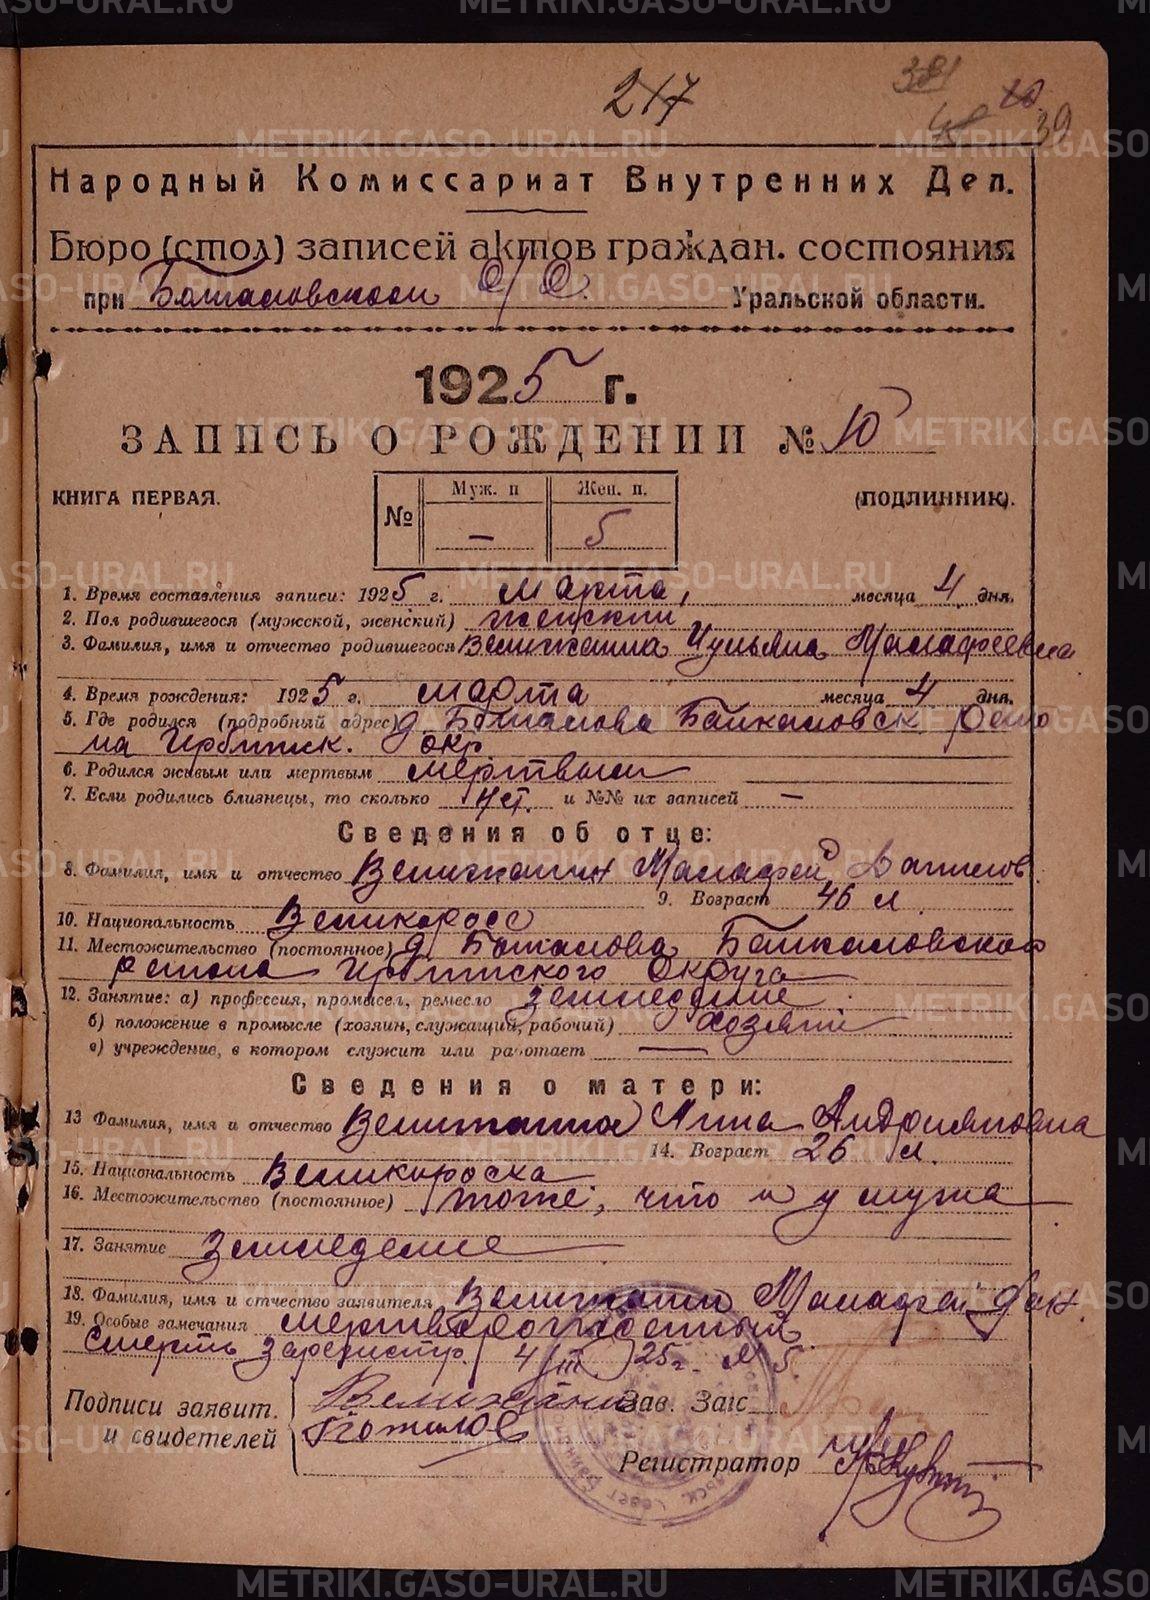 217
381
39
Народный Комиссариат Внутренних Дел.
Бюро (стол) записей актов граждан. состояния
при Боталовском С/С. Уральской области.
1925 г.
ЗАПИСЬ О РОЖДЕНИИ № 10
КНИГА ПЕРВАЯ. (ПОДЛИННИК).
№ Муж. п Жен. п.
— 5
1. Время составления записи: 1925 г. Марта, месяца 4 дня.
2. Пол родившегося (мужской, женский) женский
3. Фамилия, имя и отчество родившегося Вялижанина Иульяна Малафеевна
4. Время рождения: 1925 г. марта месяца 4 дня.
5. Где родился (подробный адрес) д. Боталова Байкаловск. райо
на Ирбитск. окр.
6. Родился живым или мертвым мертвым
7. Если родились близнецы, то сколько нет. и №№ их записей —
Сведения об отце:
8. Фамилия, имя и отчество Малафей
9. Возраст 46 л.
10. Национальность Великоросс
11. Местожительство (постоянное) д. Боталова Байкаловского
района Ирбитского Округа
12. Занятие: а) профессия, промысел, ремесло земледелие
б) положение в промысле (хозяин, служащий, рабочий) хозяин
в) учреждение, в котором служит или работает —
Сведения о матери:
13 Фамилия, имя и отчество Анна Андрияновна
14. Возраст 26 л.
15. Национальность Великоросска
16. Местожительство (постоянное) тоже, что и у мужа
17. Занятие Земледелие
18. Фамилия, имя и отчество заявителя Малафей Дан.
19. Особые замечания мертворожденный
смерть зарегистр. 4/III 25 г. № 5.
Подписи заявит.
и свидетелей
Зав. Загс
Регистратор
METRIKI.GASO-URAL.RU